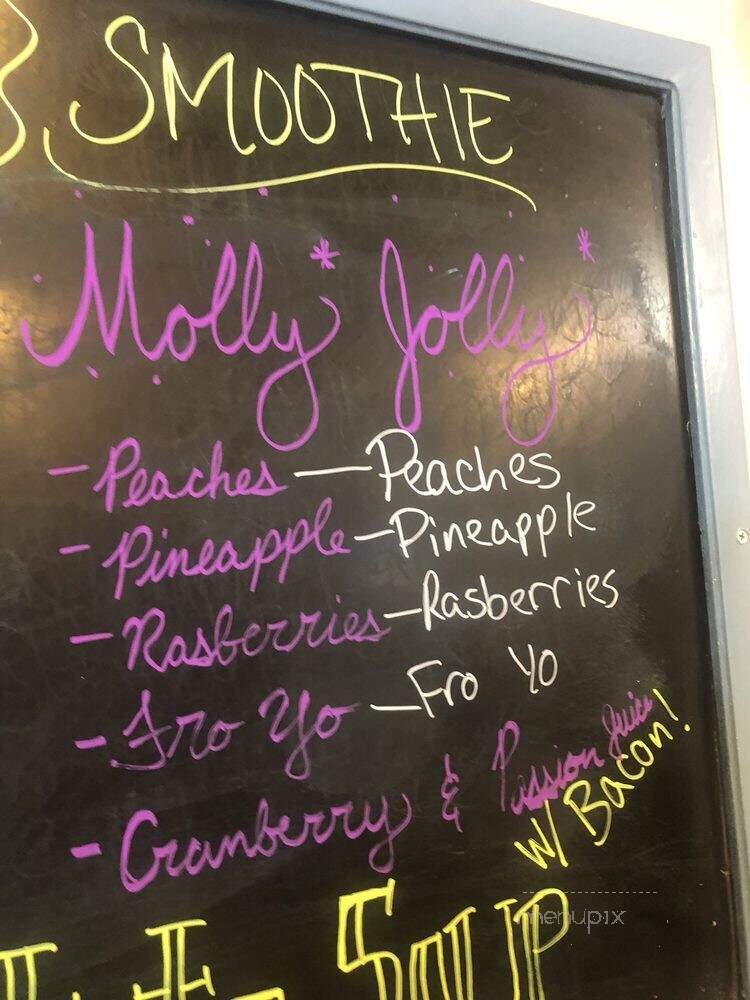 SMOOTHIE
Molly* Jolly*
- Peaches — Peaches
- Pineapple — Pineapple
- Rasberries — Rasberries
- Fro Yo — Fro Yo
- Cranberry & Passion Juice
w/ Bacon!
SOUP
menupix